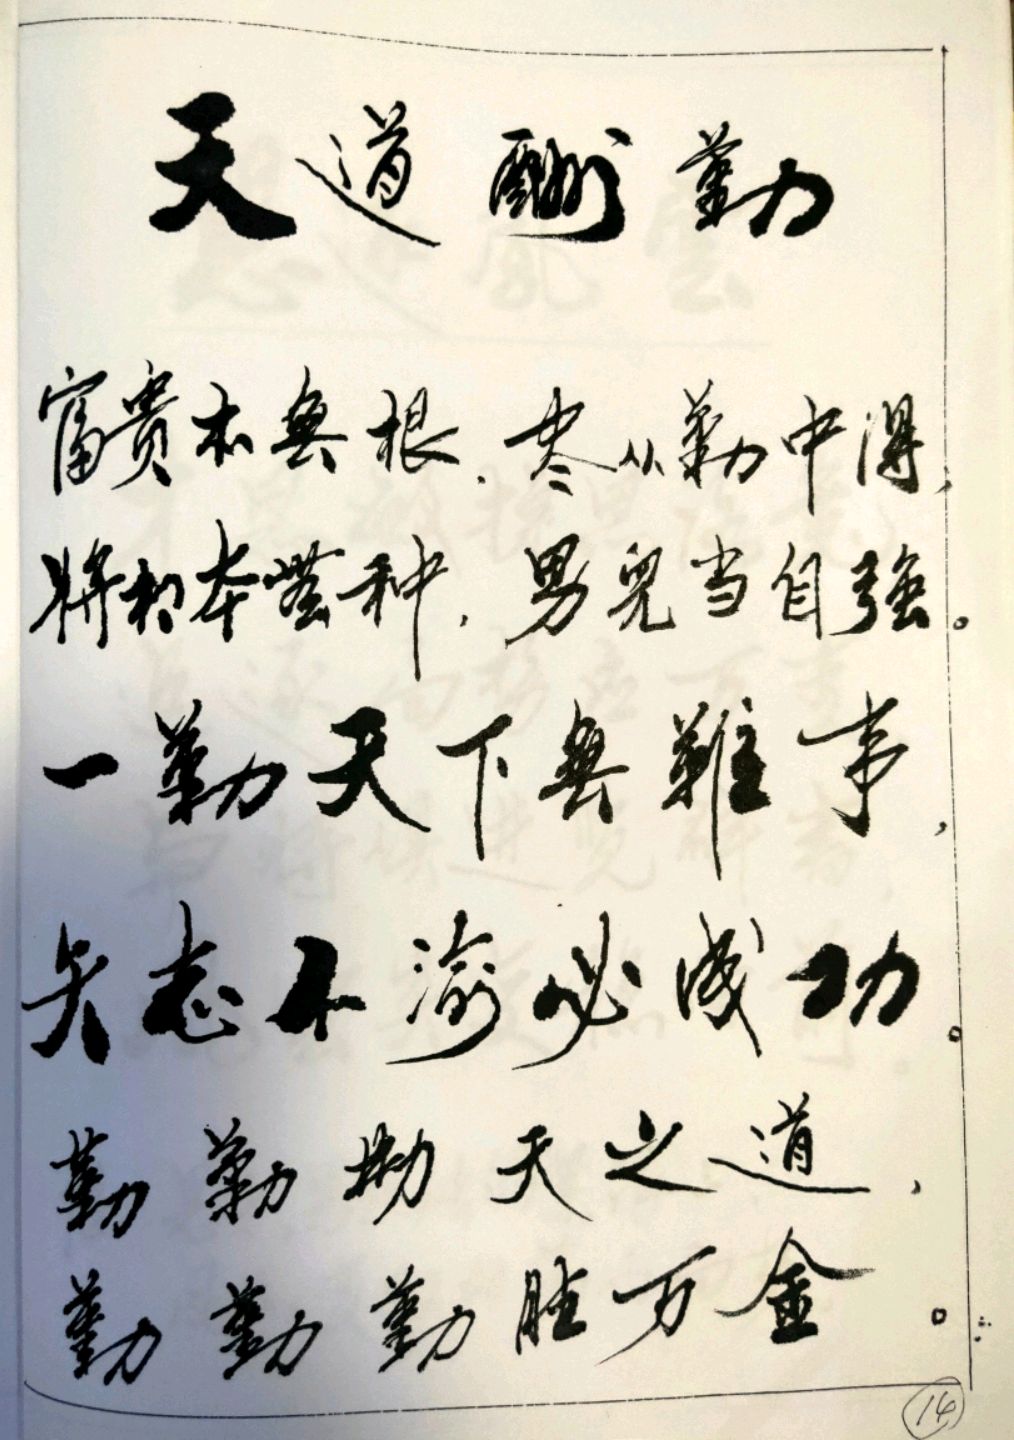 天道酬勤
富贵本無根，尽从勤中得，
将相本無种，男兒当自强。
一勤天下無難事，
矢志不渝必成功。
勤勤勤天之道，
勤勤勤胜万金。
14